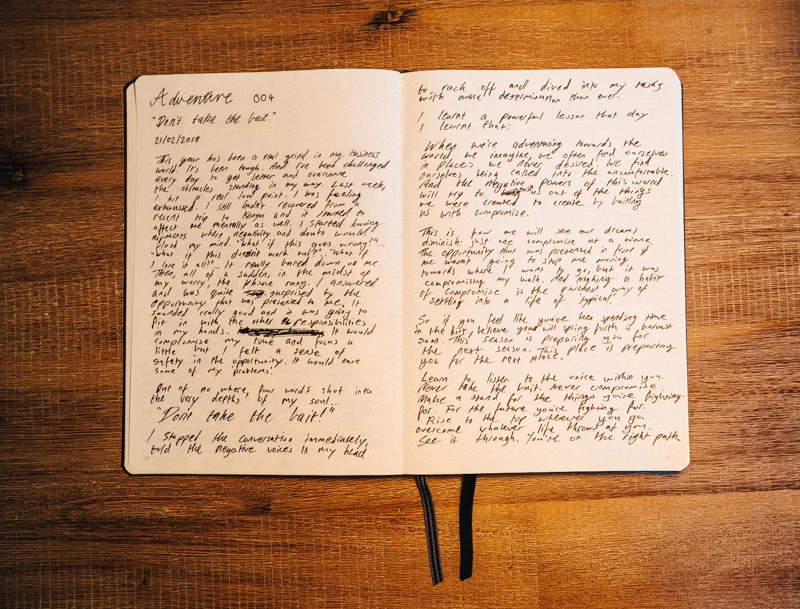 Adventure 004
"Don't take the bait."
21/02/2018
This year has been a real grind in my business
world. It's been tough. And I've been challenged
every day to get better and overcome
the obstacles standing in my way. Last week,
I hit a real low point. I was feeling
exhausted. I still hadn't recovered from a
recent trip to Kenya and it started to
affect me mentally as well. I started having
moments where negativity and doubt would
flood my mind. "What if this goes wrong?".
"What if this doesn't work out?". "What if
I lose it all?". It really bared down on me.
Then, all of a sudden, in the midst of
my worry, the phone rang. I answered
and was quite surprised by the
opportunity that was presented to me. It
sounded really good and it was going to
fit in with the other responsibilities
in my hands. It would
compromise my time and focus a
little but I felt a sense of
safety in the opportunity. It would ease
some of my problems.
Out of no where, four words shot into
the very depths of my soul...
"Don't take the bait!"
I stopped the conversation immediately,
told the negative voices in my head
to rack off and dived into my tasks
with more determination than ever.
I learnt a powerful lesson that day.
I learnt that:
When we're adventuring towards the
world we imagine, we often find ourselves
in places we never desired. We find
ourselves being called into the uncomfortable.
And the negative powers of this world
will try to us out of the things
we were created to create by baiting
us with compromise.
This is how we will see our dreams
diminish: just one compromise at a time.
The opportunity that was presented in front of
me wasn't going to stop me moving
towards where I want to go, but it was
compromising my walk. And making a habit
of compromise is the quickest way of
settling into a life of typical.
So if you feel like you've been spending time
in the dirt, believe you will spring forth a harvest
soon. This season is preparing you for
the next season. This place is preparing
you for the next place.
Learn to listen to the voice within you.
Never take the bait. Never compromise.
Make a stand for the things you're fighting
for. For the future you're fighting for.
Rise to the top wherever you go.
Overcome whatever life throws at you.
See it through. You're on the right path